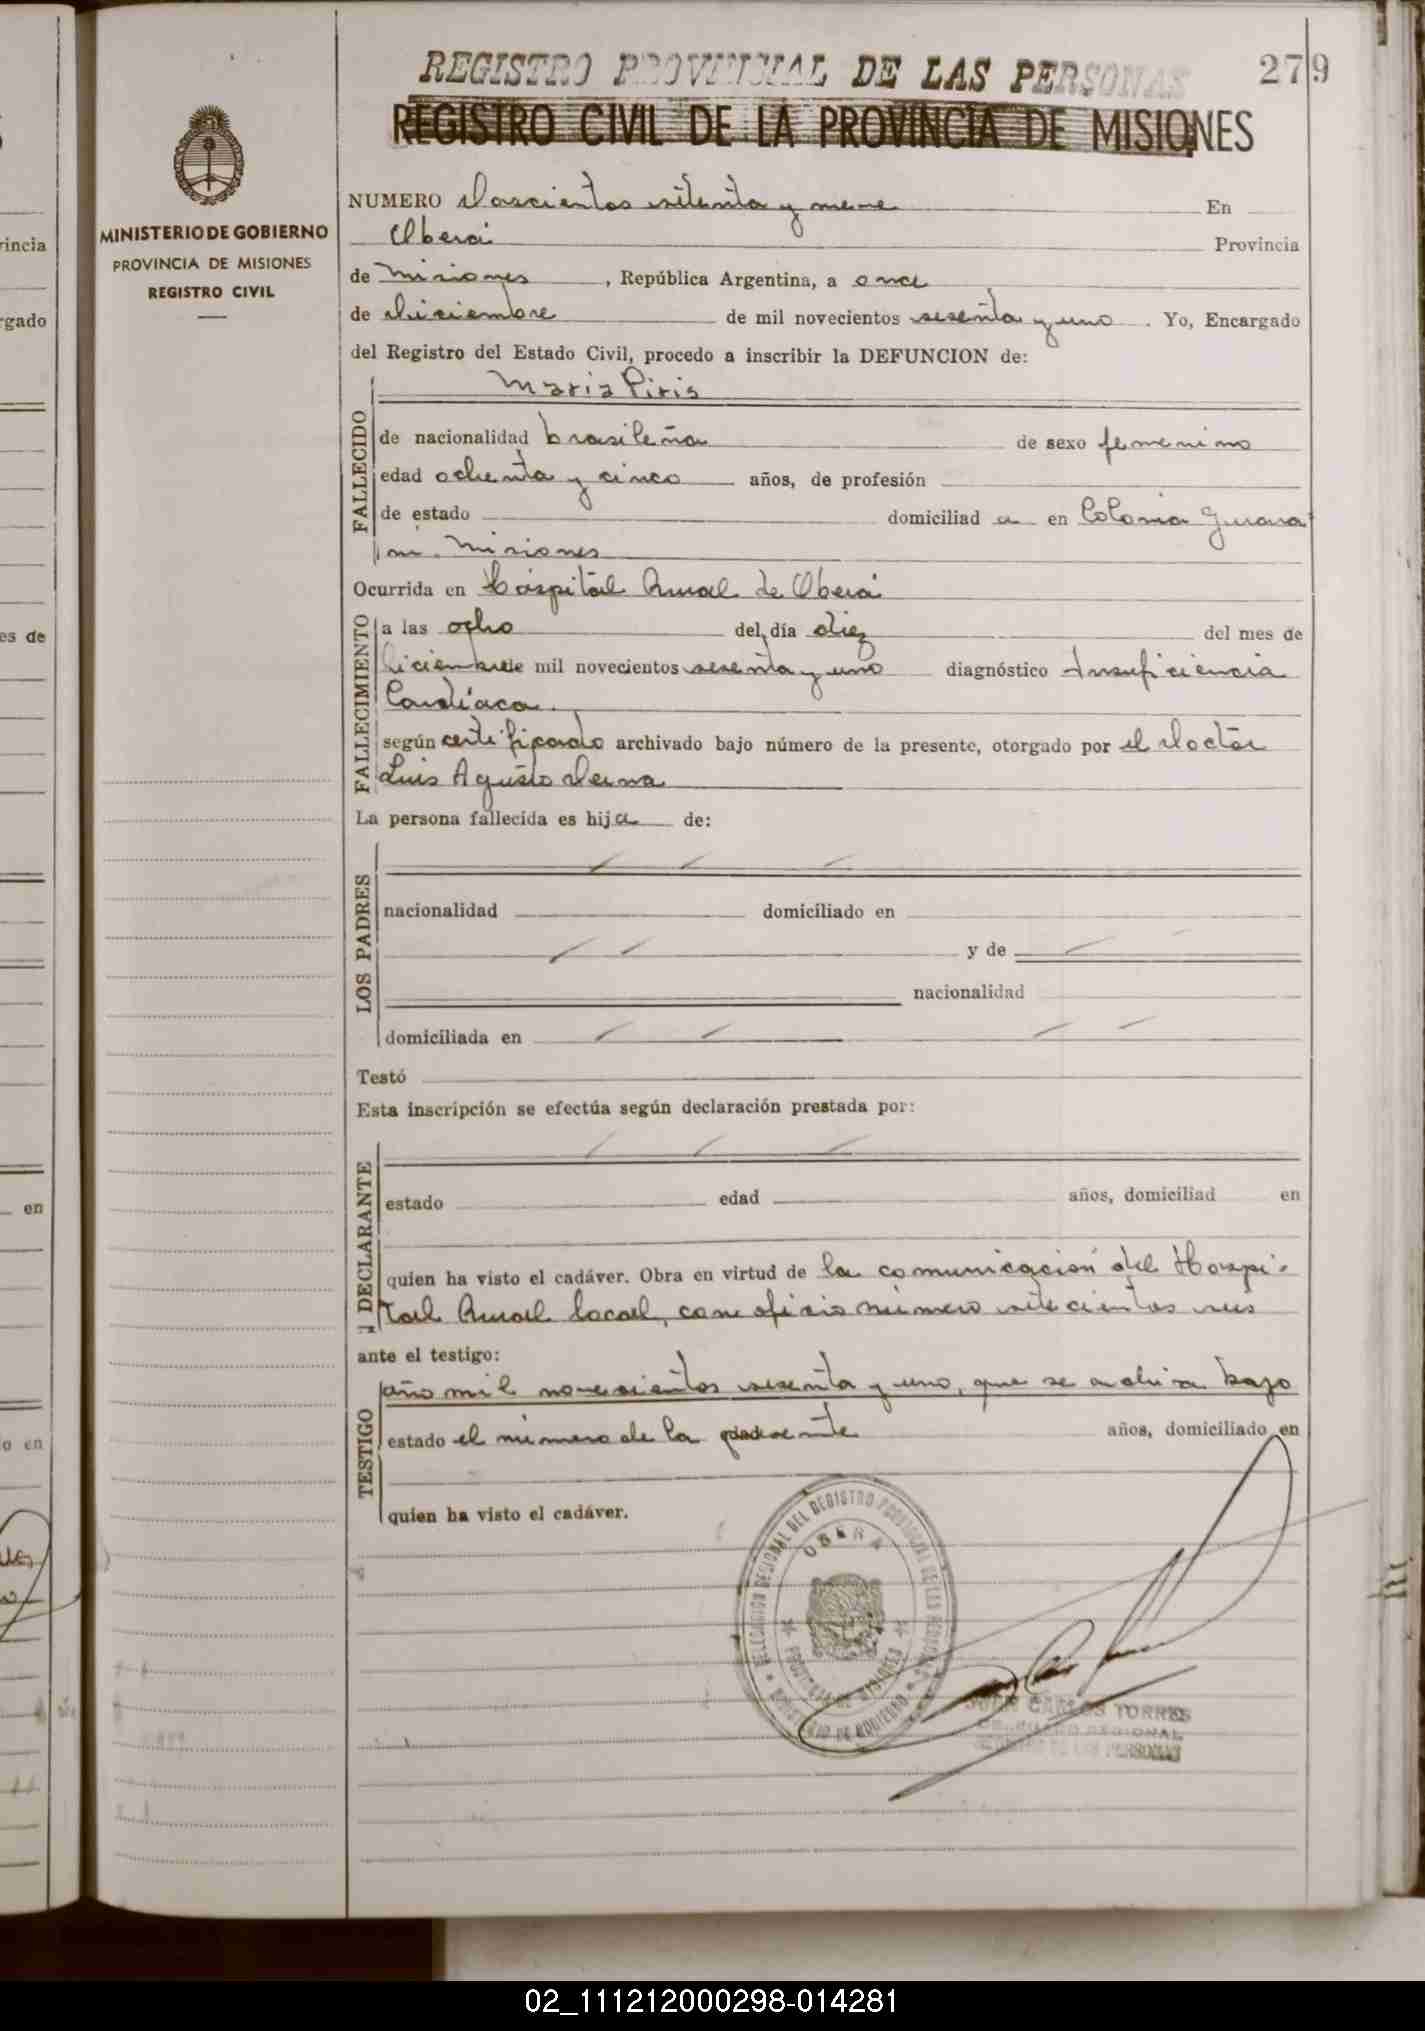 REGISTRO PROVINCIAL DE LAS PERSONAS
279
REGISTRO CIVIL DE LA PROVINCIA DE MISIONES
MINISTERIO DE GOBIERNO
PROVINCIA DE MISIONES
REGISTRO CIVIL
NUMERO Doscientos setenta y nueve En
Oberá Provincia
de Misiones, República Argentina, a once
de diciembre de mil novecientos sesenta y uno. Yo, Encargado
del Registro del Estado Civil, procedo a inscribir la DEFUNCION de:
Maria Piris
FALLECIDO
de nacionalidad brasileña de sexo femenino
edad ochenta y cinco años, de profesión
de estado domiciliad a en Colonia Guara
ni. Misiones
Ocurrida en Hospital Rural de Oberá
FALLECIMIENTO
a las ocho del día diez del mes de
diciembre de mil novecientos sesenta y uno diagnóstico Insuficiencia
Cardíaca.
según certificado archivado bajo número de la presente, otorgado por el doctor
Luis Agusto
La persona fallecida es hija de:
LOS PADRES
nacionalidad domiciliado en
y de
nacionalidad
domiciliada en
Testó
Esta inscripción se efectúa según declaración prestada por:
DECLARANTE
estado edad años, domiciliad en
quien ha visto el cadáver. Obra en virtud de la comunicación del Hospi-
tal Rural local, con oficio número setecientos seis
ante el testigo:
año mil novecientos sesenta y uno, que se archiva bajo
TESTIGO
estado el número de la presente años, domiciliado en
quien ha visto el cadáver.
DELEGACION REGIONAL DEL REGISTRO PROVINCIAL DE LAS PERSONAS
OBERA
PROVINCIA DE MISIONES
MINISTERIO DE GOBIERNO
JUAN CARLOS TORRES
DELEGADO REGIONAL
REGISTRO DE LAS PERSONAS
02_111212000298-014281